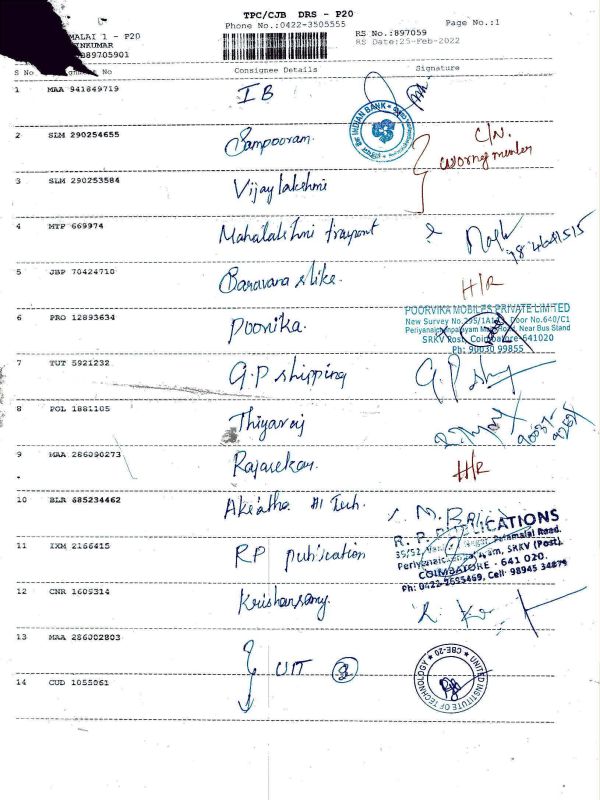 TPC/CJB DRS - P20
Phone No.:0422-3505555
Page No.:1
RS No.:897059
RS Date:25-Feb-2022
MALAI 1 - P20
INKUMAR
89705901
S No
No
Consignee Details
Signature
1 MAA 941849719 IB
INDIAN BANK
2 SLM 290254655 Sampooram.
C/N.
3 SLM 290253584 Vijaylakshmi
4 MTP 669974 Mahalakshmi
5 JBP 70424710 H/R
6 PRO 12893634 Poorvika.
POORVIKA MOBILES PRIVATE LIMITED
New Survey No. Door No.640/C1
Near Bus Stand
SRKV Post, Coimbatore-641020
Ph: 90030 99855
7 TUT 5921232 G.P shipping
8 POL 1881105 Thiyaraj
9 MAA 286090273 Rajasekar. H/R
10 BLR 685234462 Hi Tech.
11 IXM 2166415 RP publication
R. P. PUBLICATIONS
35/52, Palamalai Road,
SRKV (Post),
COIMBATORE - 641 020.
Ph: 0422-2695469, Cell: 98945 34879
12 CNR 1609314
13 MAA 286002803
UIT 2
UNITED INSTITUTE OF TECHNOLOGY ★ CBE-20 ★
14 CUD 1055061